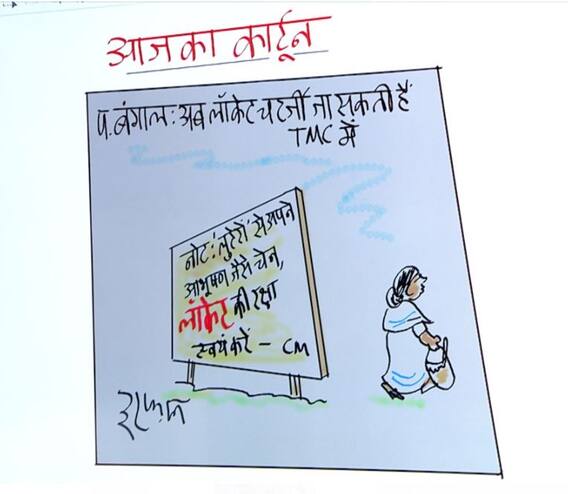 आज का कार्टून
प. बंगाल: अब लॉकेट चटर्जी जा सकती हैं
TMC में
नोट: लुटेरों से अपने
आभूषण जैसे चेन,
लॉकेट की रक्षा
स्वयं करें - CM
इरफ़ान